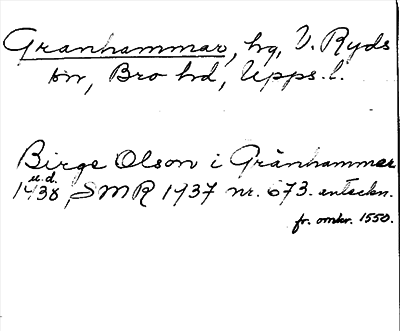 Granhammar, hg, V. Ryds
sn, Bro hd, Upps. l.
Birge Olson i Gränhammar
u.d.
1438, SMR 1937 nr. 673. anteckn.
fr. omkr. 1550.